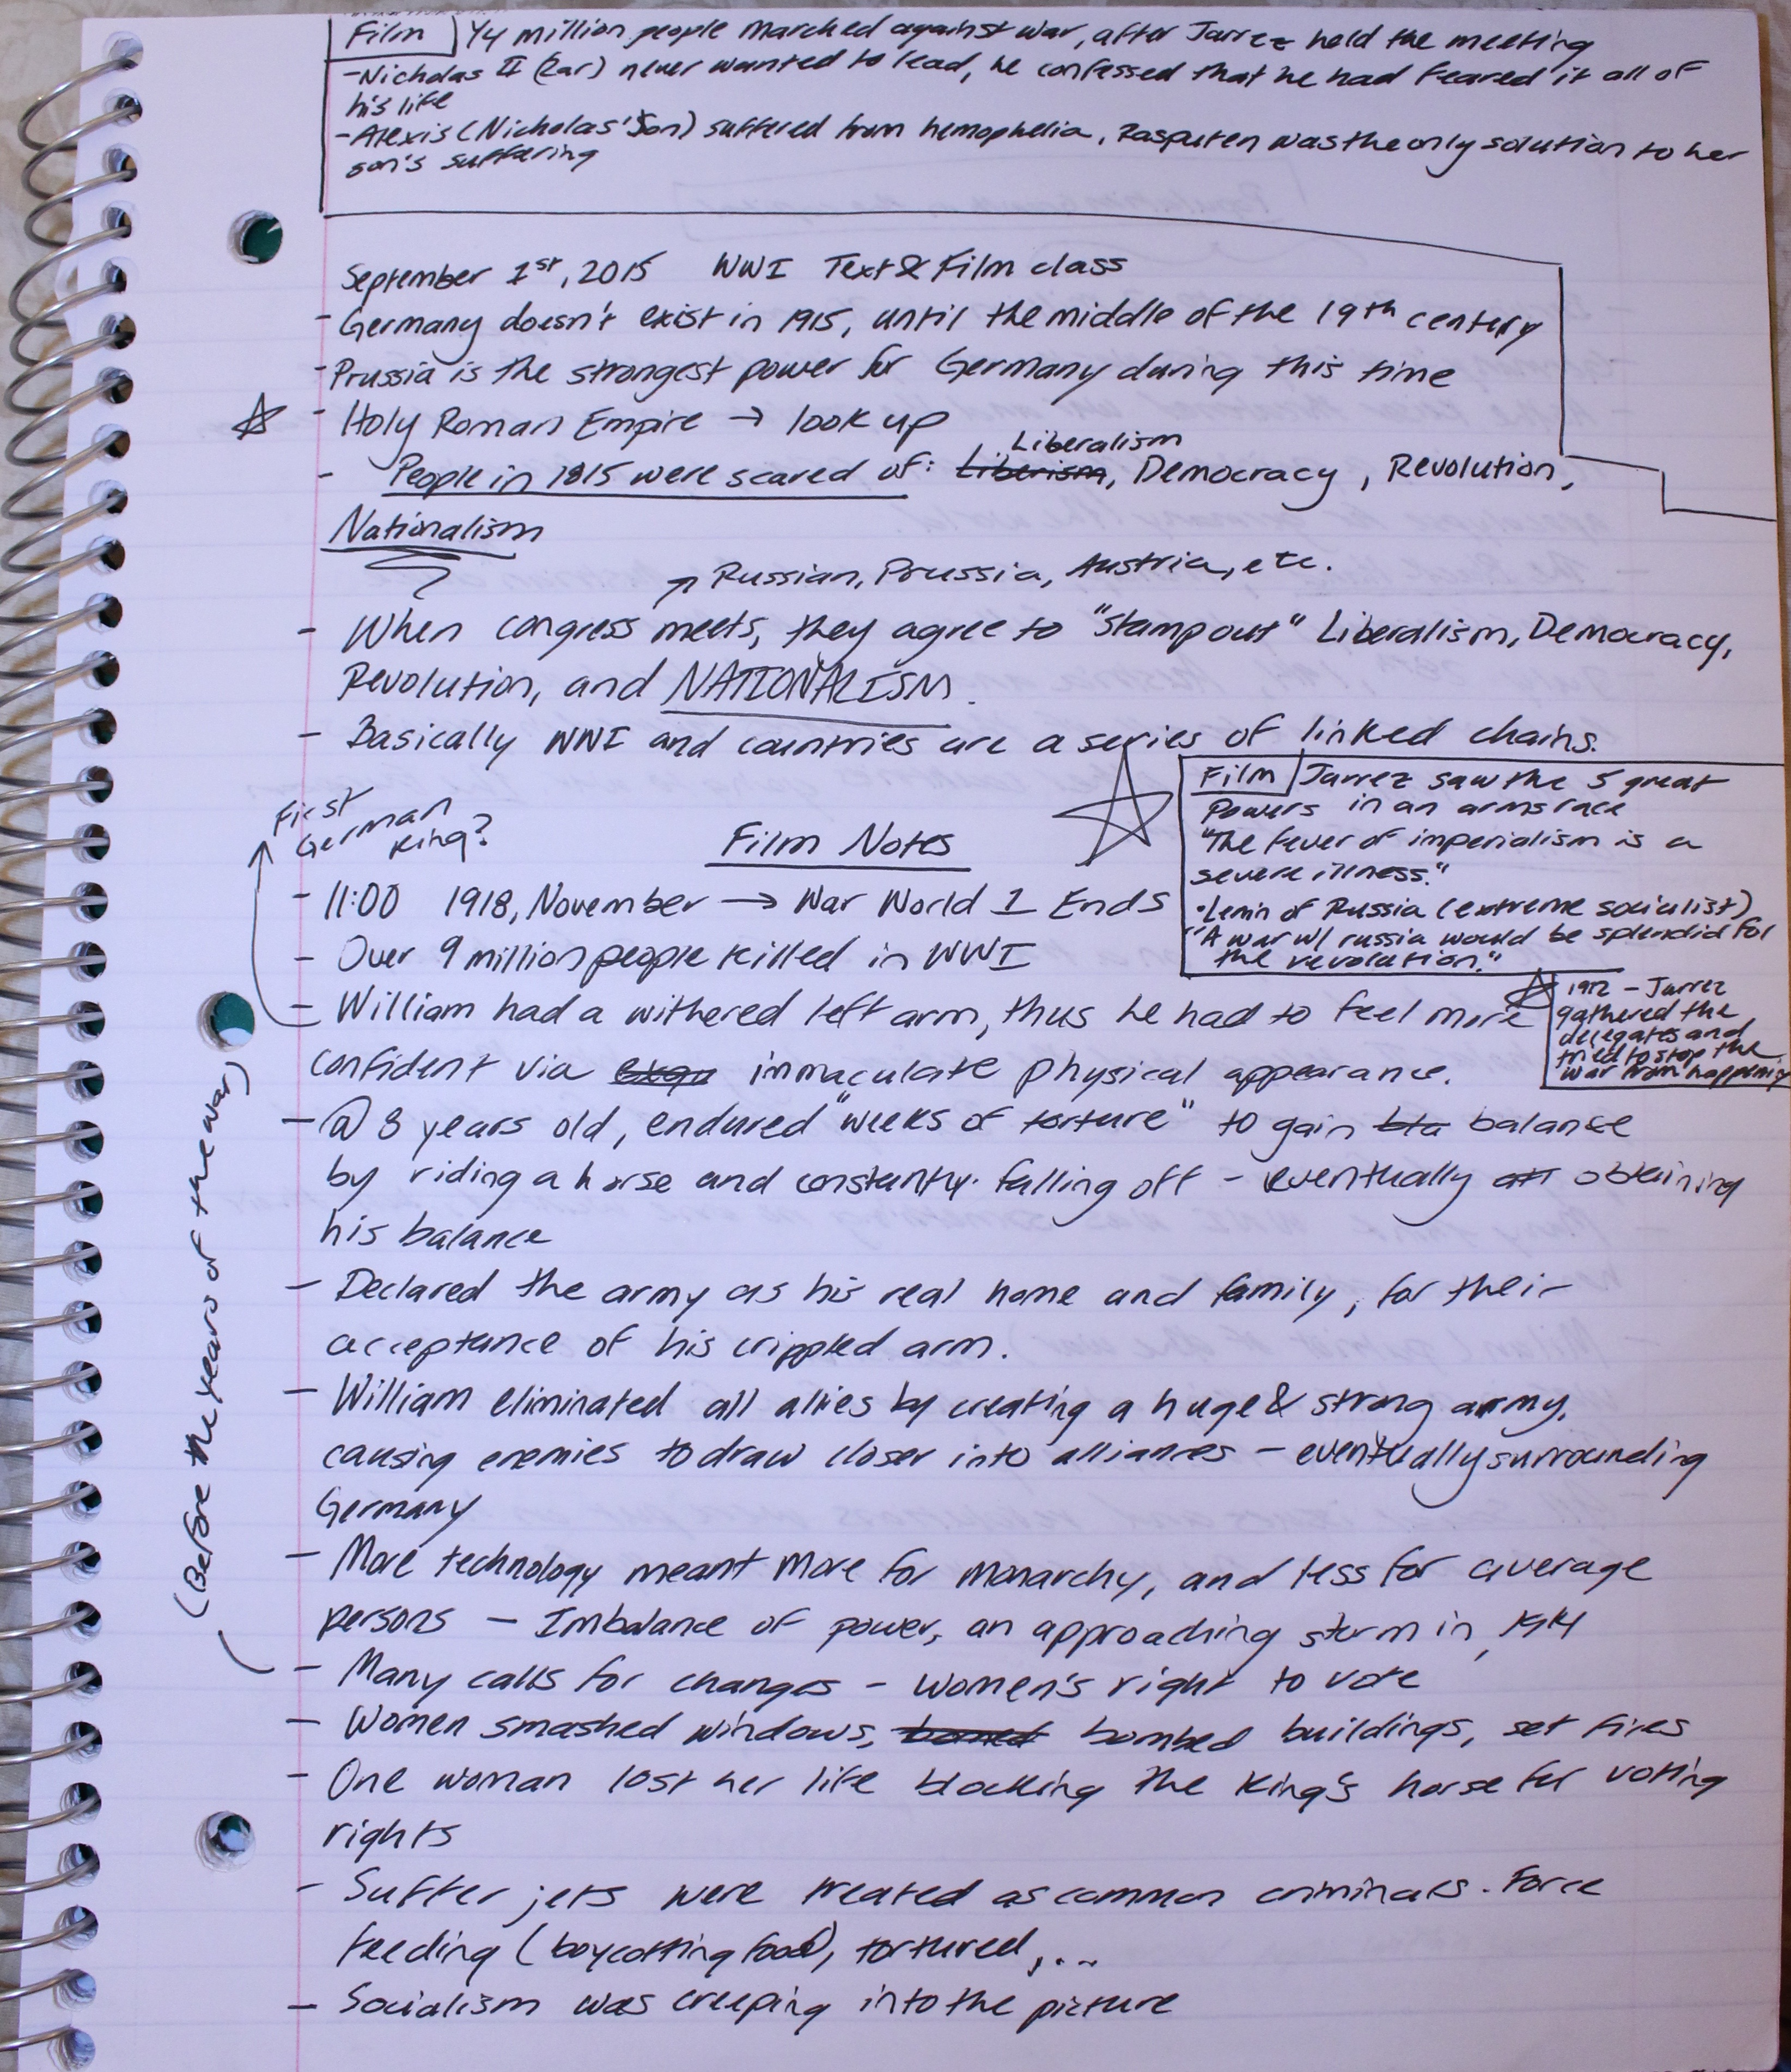 Film 1/4 million people marched against war, after Jarrez held the meeting
-Nicholas II (Zar) never wanted to lead, he confessed that he had feared it all of
his life
-Alexis (Nicholas' Son) suffered from hemophelia, Rasputen was the only solution to her
son's suffering
September 1st, 2015 WWI Text & Film class
- Germany doesn't exist in 1915, until the middle of the 19th century
- Prussia is the strongest power for Germany during this time
- Holy Roman Empire → look up
Liberalism
- People in 1815 were scared of: Liberism, Democracy, Revolution,
Nationalism
Russian, Prussia, Austria, etc.
- When congress meets, they agree to "stamp out" Liberalism, Democracy,
Revolution, and NATIONALISM.
- Basically WWI and countries are a series of linked chains.
Film Jarrez saw the 5 great
Powers in an arms race
"The fever of imperialism is a
severe illness."
•Lenin of Russia (extreme socialist)
"A war w/ russia would be splendid for
the revolution."
1912 - Jarrez
gathered the
delegates and
tried to stop the
war from happening
First
German
king?
Film Notes
- 11:00 1918, November → War World 1 Ends
- Over 9 million people killed in WWI
- William had a withered left arm, thus he had to feel more
confident via immaculate physical appearance.
- @ 8 years old, endured "weeks of torture" to gain balance
by riding a horse and constantly falling off - eventually obtaining
his balance
- Declared the army as his real home and family, for their
acceptance of his crippled arm.
- William eliminated all allies by creating a huge & strong army,
causing enemies to draw closer into alliances - eventually surrounding
Germany
- More technology meant more for monarchy, and less for average
persons - Imbalance of power, an approaching storm in 1914
- Many calls for changes - women's right to vote
- Women smashed windows, bombed buildings, set fires
- One woman lost her life blocking the King's horse for voting
rights
- Suffer jets were treated as common criminals. Force
feeding (boycotting food), tortured,...
- Socialism was creeping into the picture
(Before the years of the war)